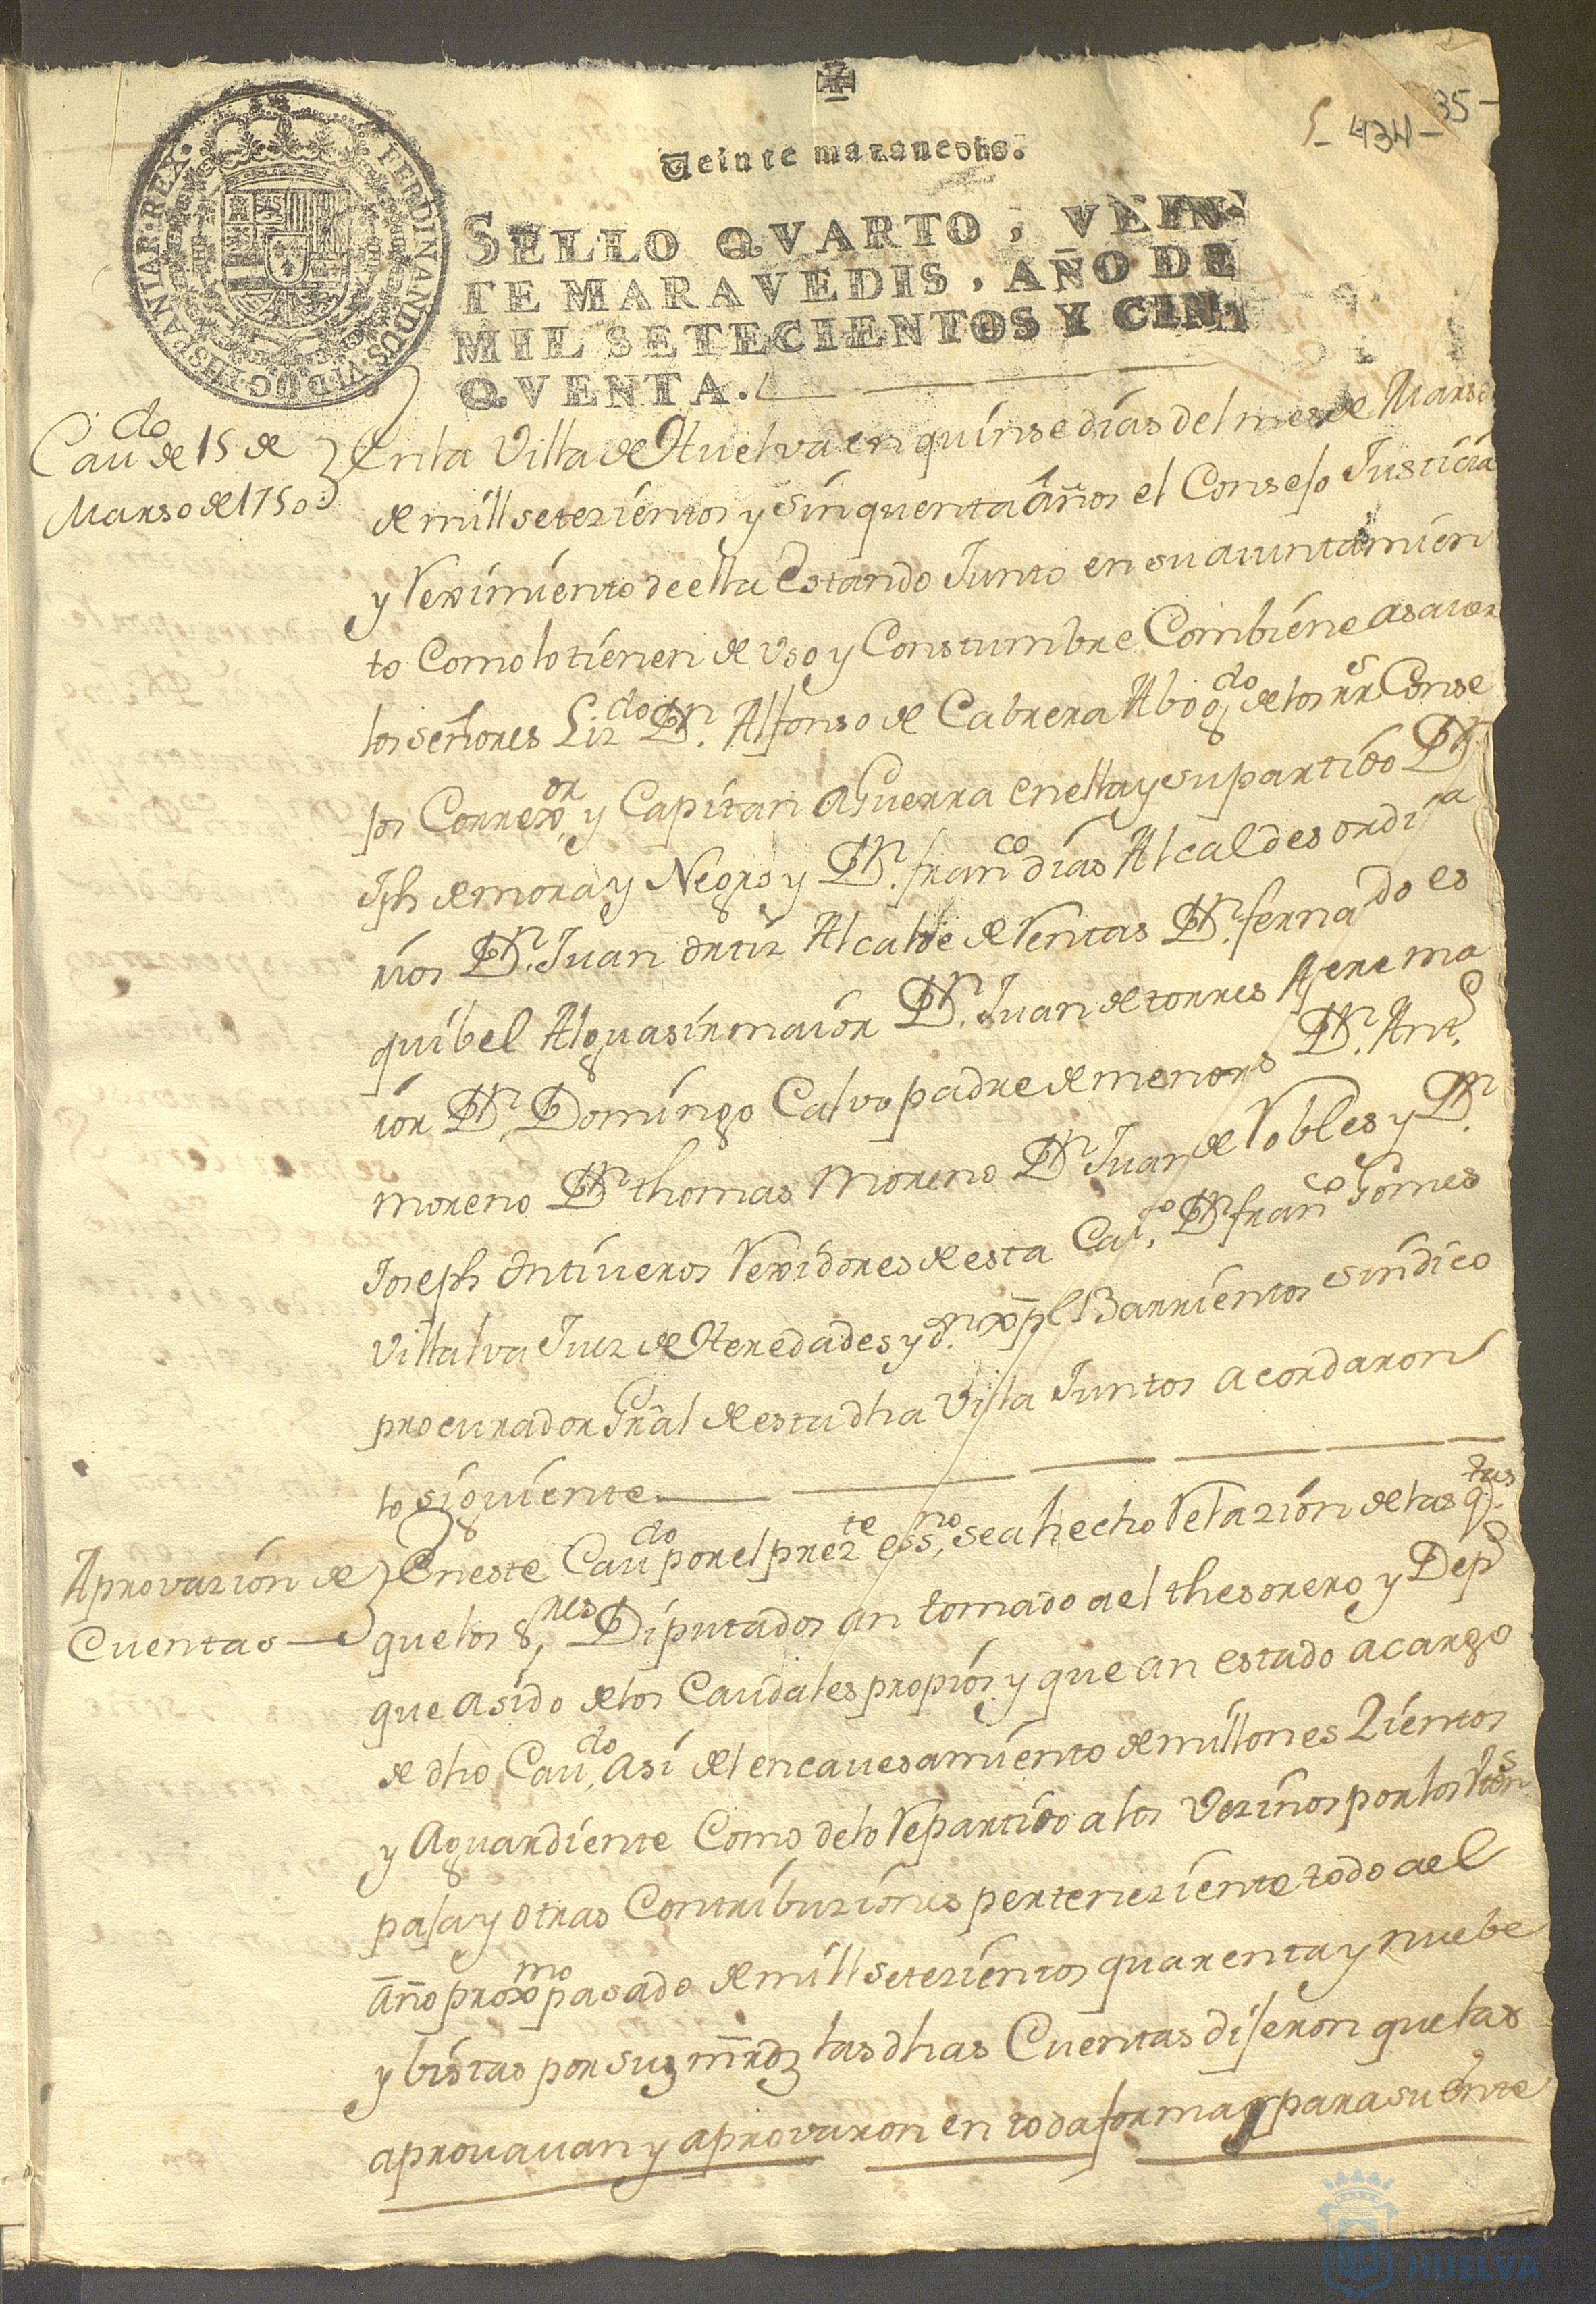 5- 434- 35-
Veinte maravedis.
SELLO QVARTO, VEIN-
TE MARAVEDIS, AÑO DE
MIL SETECIENTOS Y CIN-
QVENTA.
FERDINANDUS·VI·D·G·HISPANIAR·REX·
Cau.do de 15 de
Marso de 1750
En la Villa de Huelva en quinse dias del mes de Marso
de mill setezientos y sinquenta años el Consejo Justicia
y Reximiento de ella Estando Junto en su aiuntamien
to Como lo tienen de Vso y Constumbre Combiene asaver
los señores Liz.do Dn. Alfonso de Cabrera Abog.do de los RR.s Conse
jos Correx.or y Capitan aGuerra en ella y su partido Dn.
Jph de mora y Negro y Dn. fran.co dias Alcaldes ordina
rios Dn. Juan ortiz Alcalde de Rentas Dn. fernado es
quibel Alguasir maior Dn. Juan de torres Jere ma
ior Dn. Domingo Calvo padre de menors Dn. Ant.o
moreno Dn. thomas Moreno Dn. Juan de Robles y Dn.
Joseph Ontiveros Rexidores de esta Ca.o, Dn. fran.co Gomes
Villalva Juez de Heredades y dn. xpl Barrientos sindico
procurador Gral de esta dha Villa Juntos acordaron
lo siguiente
Aprovazion de
Cuentas
En este Cau.do por el prez.te ess.no, se a hecho Relazion de las q.tas
que los S.res Diputados an tomado a el thesorero y Dep.o
que asido de los Caudales propios y que an estado a cargo
de dho Cau.do, asi del encavesamiento de millones Zientos
y Aguardiente Como de lo Repartido a los Vezinos por los Vten.s
paja y otras Contribuziones perteneziente todo a el
año prox.mo pasado de mill setezientos quarenta y nuebe
y bistas por sus mrds las dhas Cuentas dijeron que las
aprouauan y aprovaron en toda forma y para su ente
HUELVA